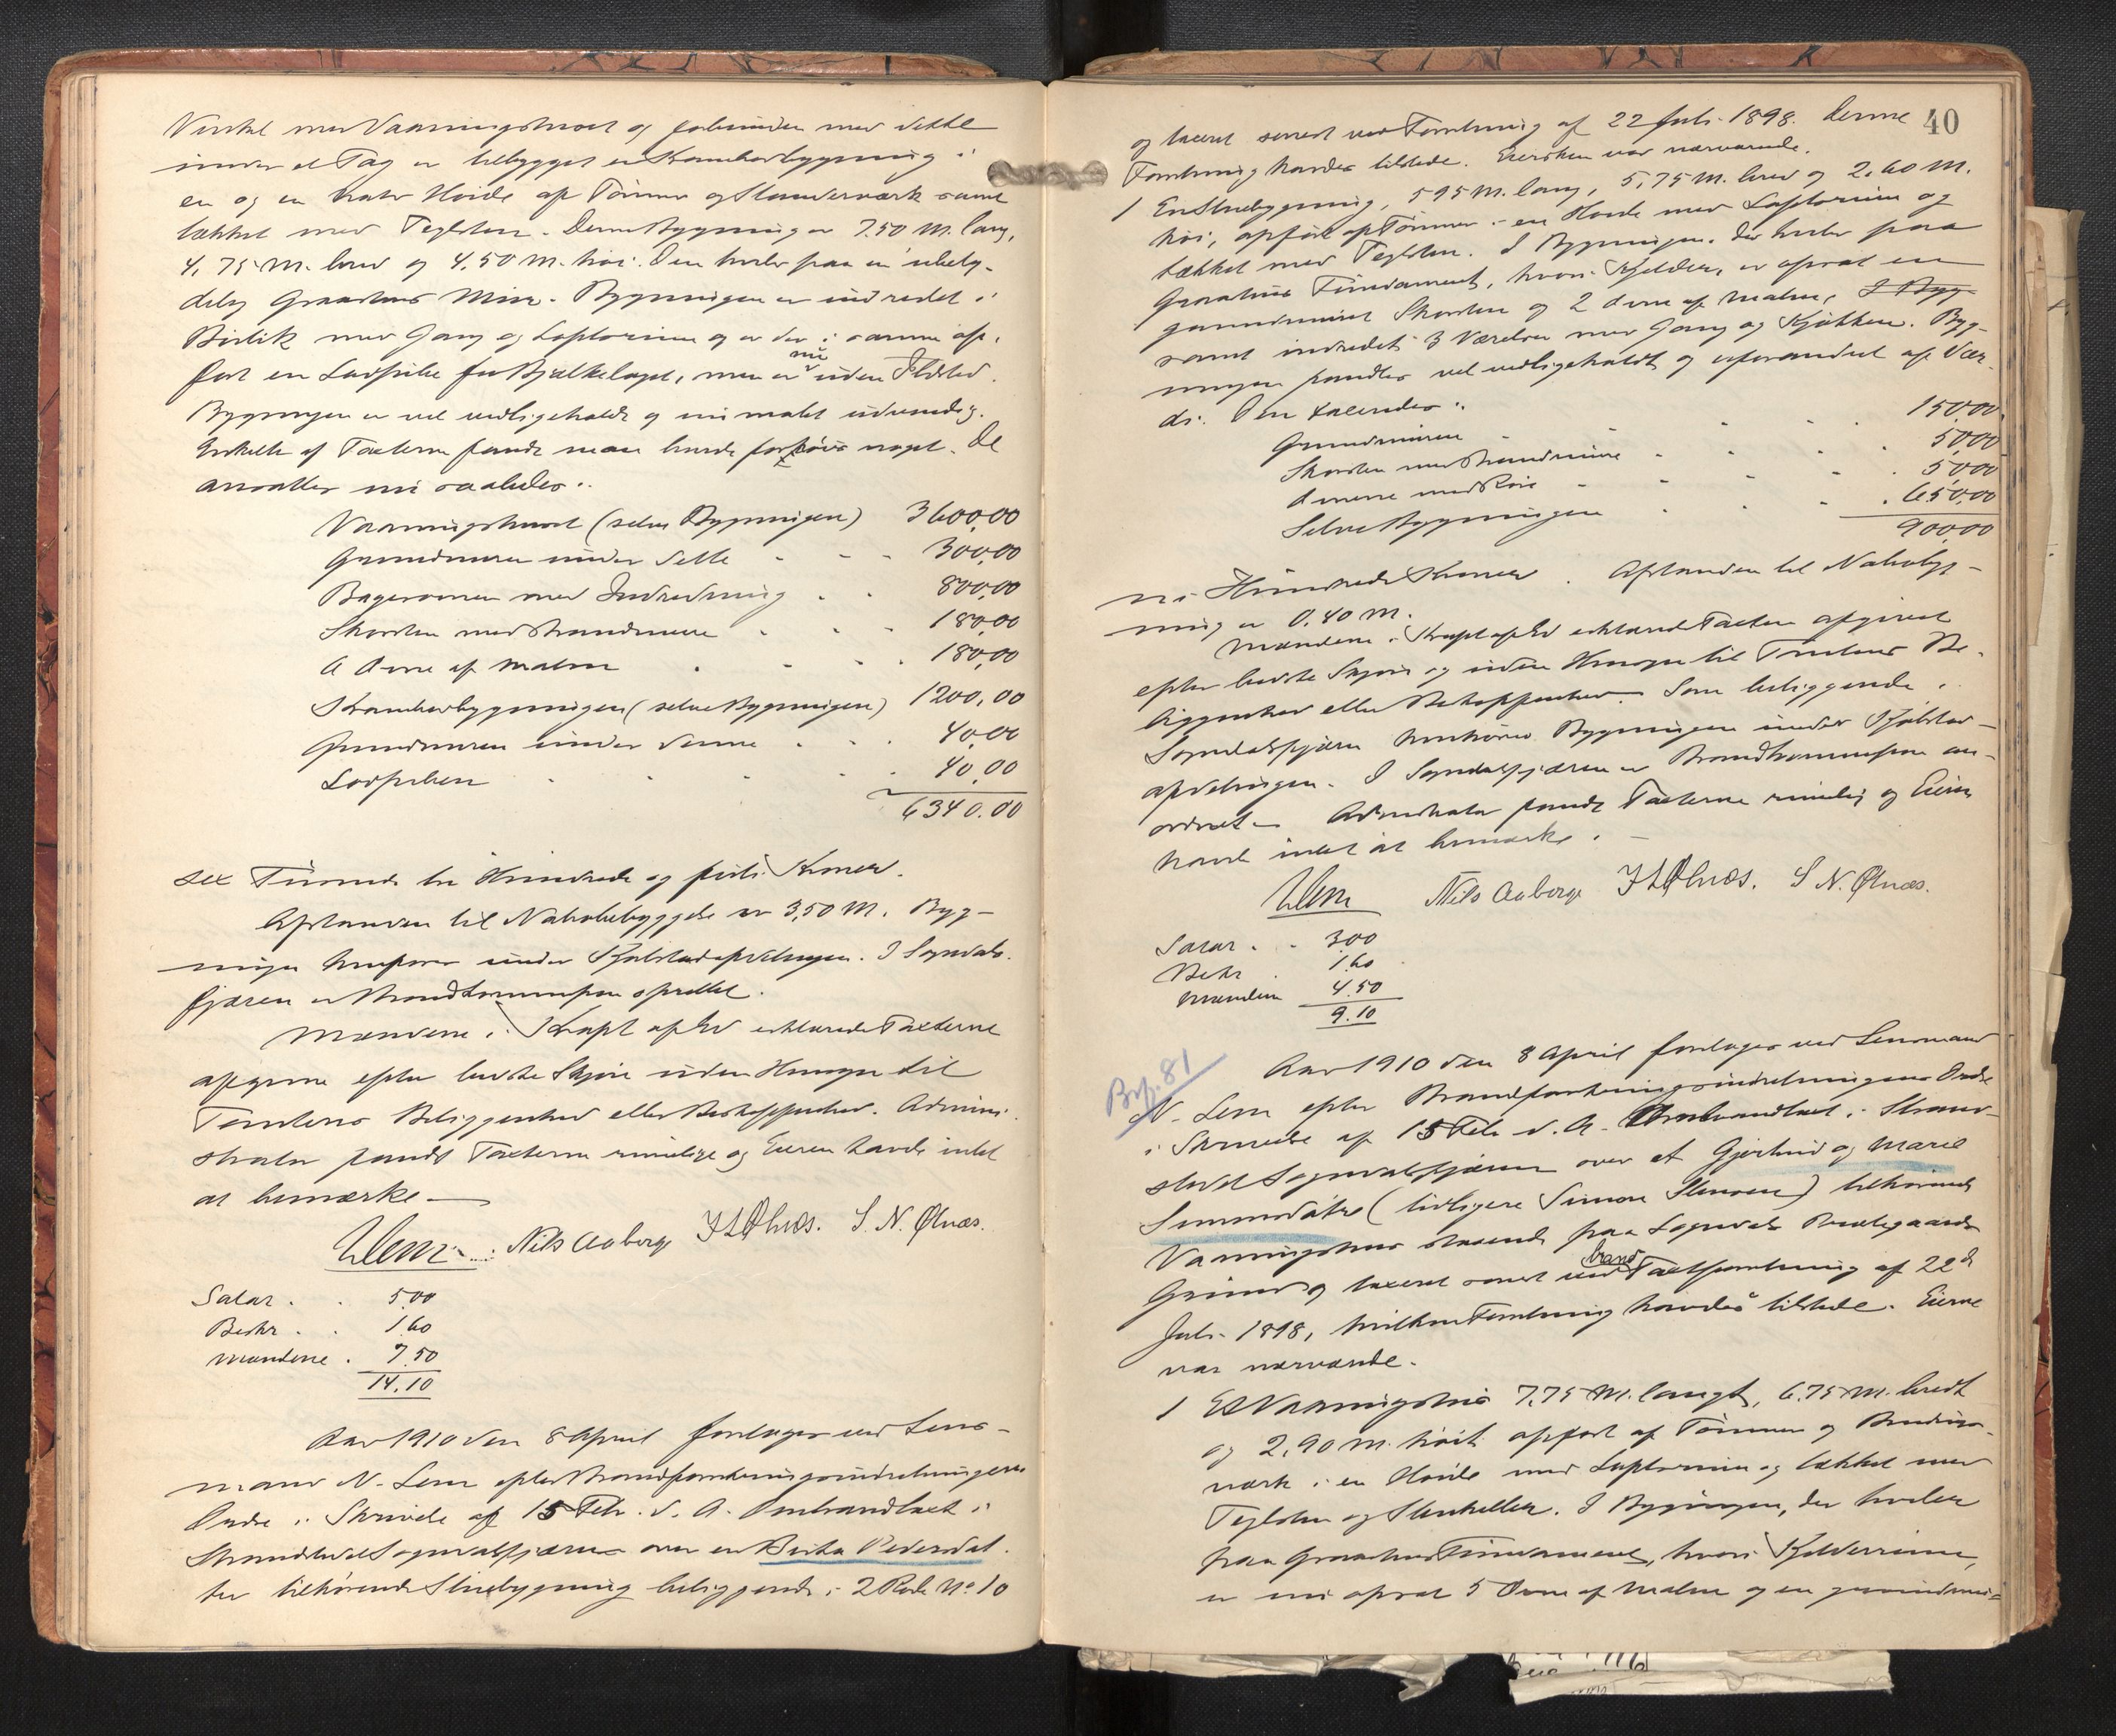 Vinkel med Vaaningshuset og forbunden med dette
under et Tag er tilbygget en Krambodbygning i
en og en halv Høide af Tømmer og Standerværk samt
tækket med Teglsten. Denne Bygning er 7.50 M. lang,
4,75 M. bred og 4,50 M. høi. Den hviler paa en ubety-
delig Graastens Mur. Bygningen er indredet i
Butik med Gang og Loftsrum og er der i samme op-
ført en for Bjælkelaget, men er nu uden Ildsted.
Bygningen er vel vedligeholdt og nu malet udvendig.
Enkelte af Taxterne fandt man burde forhøies noget. De
ansattes nu saaledes:
Vaaningshuset (selve Bygningen) 3600,00
Grundmuren under dette - - - 300,00
Bagerovnen med Indredning . . 800,00
Skorsten med Brandmure - - - 180,00
Ovne af Malm . - - . 180,00
Krambodbygningen (selve Bygningen) 1200,00
Grundmuren under denne . . . 40,00
. . . . 40,00
6340.00
sex Tusende tre Hundrede og firti Kroner.
Afstanden til Nabobebyggelse er 3,50 M. Byg-
ningen henføres under Kjøbstadafdelingen. I Sogndals-
fjæren er Brandkommission oprettet.
Mændene i Kraft af Ed erklærede Taxterne
afgivne efter bedste Skjøn uden Hensyn til
Tomtens Beliggenhed eller Beskaffenhed. Admini-
strator fandt Taxterne rimelige og Eieren havde intet
at bemærke —
Lem Nils Aaberge S. N. Ølnæs.
Salar . . 5.00
Beskr . . 1.60
Mændene . 7.50
14.10
Aar 1910 den 8 April foretoges ved Lens-
mand N. Lem efter Brandforsikringsindretningens
Ordre i Skrivelse af 15 Feb. d. A. Ombrandtaxt i
Strandstedet Sogndalsfjæren over en Berta Pedersdat-
ter tilhørende Stuebygning beliggende i 2 Rode No 10
40
og taxeret senest ved Forretning af 22 Juli 1898. Denne
Forretning havdes tilstede. Eiersken var nærværende.
1 En Stuebygning, 5,95 M. lang, 5,75 M. bred og 2,60 M.
høi, opført af Tømmer i en Høide med Loftsrum og
tækket med Teglsten. I Bygningen, der hviler paa
Graastens Fundament, hvori Kjelder, er opsat en
grundmuret Skorsten og 2 Ovne af Malm, I Byg-
samt indredet 3 Værelser med Gang og Kjøkken. Byg-
ningen fandtes vel vedligeholdt og uforandret af Vær-
di. Den taxeredes:
Grundmuren - - . . 150,00
Skorsten med Brandmure - . . . 50,00
Ovnene med Rør - - - . 50,00
Selve Bygningen . . . 650,00
900,00
ni Hundrede Kroner. Afstanden til Nabobyg-
ning er 0,40 M.
Mændene i Kraft af Ed erklærede Taxten afgivet
efter bedste Skjøn og uden Hensyn til Tomtens Be-
liggenhed eller Beskaffenhed. Som beliggende i
Sogndalsfjæren henhører Bygningen under Kjøbstad-
afdelingen. I Sogndalsfjæren er Brandkommission an-
ordnet. Administrator fandt Taxterne rimelig og Eieren
havde intet at bemærke. —
Lem Nils Aaberge S. N. Ølnæs.
Salar . . 3.00
Beskr . 1.60
Mændene 4.50
9.10
Brf. 81
Aar 1910 den 8 April foretoges ved Lensmand
N. Lem efter Brandforsikringsindretningens Ordre
i Skrivelse af 15 Feb. d. A. Ombrandtaxt i Strand-
stedet Sogndalsfjæren over et Gjertrud og Marie
Simonsdøtre (tidligere Simon Stenseen) tilhørende
Vaaningshus staaende paa Sogndals Prestegaards
Grund og taxeret senest ved brand Taxtforretning af 22de
Juli 1898, hvilken Forretning havdes tilstede. Eierne
var nærværende.
1 Et Vaaningshus 7,75 M. langt, 6,75 M. bredt
og 2,90 M. høit opført af Tømmer og Bindings-
værk i en Høide med Loftsrum og tækket med
Teglsten og Stenheller. I Bygningen, der hviler
paa Graastens Fundament, hvori Kjelderrum,
er nu opsat 5 Ovne af Malm og en grundmu-